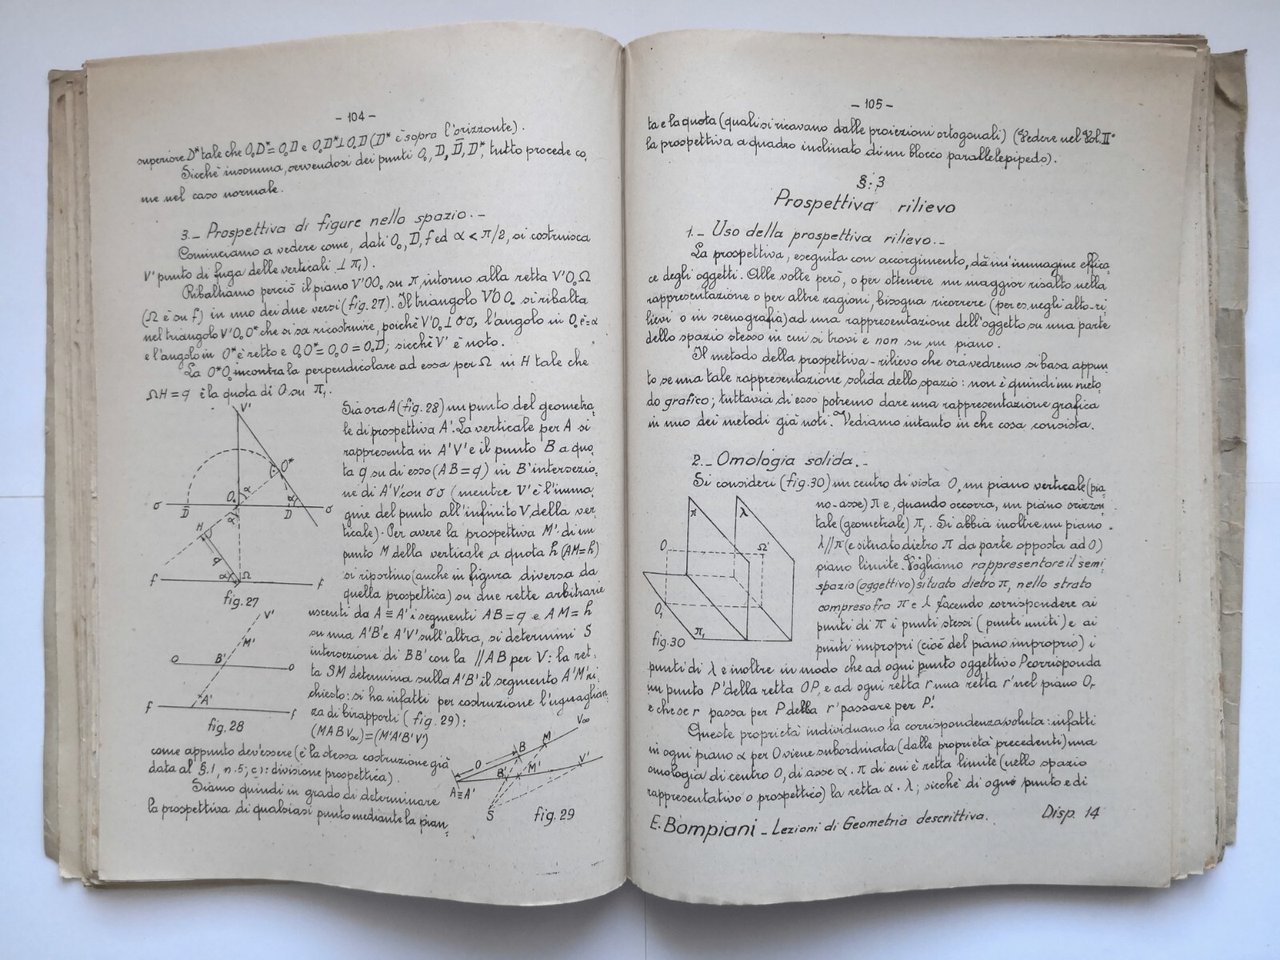 - 104 -
superiore D* tale che O₀D* = O₀D e O₀D* ⊥ O₀D (D* è sopra l'orizzonte).
Sicchè insomma, servendosi dei punti O₀, D, D̄, D*, tutto procede co_
me nel caso normale.
3_ Prospettiva di figure nello spazio._
Cominciamo a vedere come, dati O₀, D, f ed α < π/2, si costruisca
V' punto di fuga delle verticali ⊥ π₁).
Ribaltiamo perciò il piano V'OO₀ su π intorno alla retta V'O₀Ω
(Ω è su f) in uno dei due versi (fig. 27). Il triangolo V'OO₀ si ribalta
nel triangolo V'O₀O* che si sa ricostruire, poichè V'O₀ ⊥ σσ, l'angolo in O₀ è = α
e l'angolo in O* è retto e O₀O* = O₀O = O₀D; sicchè V' è noto.
La O*O₀ incontra la perpendicolare ad essa per Ω in H tale che
ΩH = q è la quota di O su π₁.
Sia ora A (fig. 28) un punto del geometra_
le di prospettiva A'. La verticale per A si
rappresenta in A'V' e il punto B a quo_
ta q su di esso (AB = q) in B' intersezio_
ne di A'V' con σσ (mentre V' è l'imma_
gine del punto all'infinito V della ver_
ticale). Per avere la prospettiva M' di un
punto M della verticale a quota h (AM = h)
si riportino (anche in figura diversa da
quella prospettica) su due rette arbitrarie
uscenti da A ≡ A' i segmenti AB = q e AM = h
su una A'B' e A'V' sull'altra, si determini S
intersezione di BB' con la // AB per V': la ret_
ta SM determina sulla A'B' il segmento A'M' ri_
chiesto: si ha infatti per costruzione l'uguaglian_
za di birapporti (fig. 29):
(MABV∞) = (M'A'B'V')
come appunto dev'essere (è la stessa costruzione già
data al §.1, n.5; c): divisione prospettica).
Siamo quindi in grado di determinare
la prospettiva di qualsiasi punto mediante la pian_
V'
O*
O₀
α
σ
D̄
D
σ
H
q
α
Ω
f
f
fig. 27
V'
M'
σ
B'
σ
A'
f
f
fig. 28
V∞
M
B
Q
V'
B'
M'
A≡A'
S
fig. 29
- 105 -
ta e la quota (quali si ricavano dalle proiezioni ortogonali) (Vedere nel Vol. II°
la prospettiva a quadro inclinato di un blocco parallelepipedo).
§: 3
Prospettiva rilievo
1._ Uso della prospettiva rilievo._
La prospettiva, eseguita con accorgimento, dà un'immagine effica_
ce degli oggetti. Alle volte però, o per ottenere un maggior risalto nella
rappresentazione o per altre ragioni, bisogna ricorrere (per es. negli alto-ri_
lievi o in scenografia) ad una rappresentazione dell'oggetto su una parte
dello spazio stesso in cui si trova e non su un piano.
Il metodo della prospettiva-rilievo che ora vedremo si basa appun_
to su una tale rappresentazione solida dello spazio: non è quindi un meto_
do grafico; tuttavia di esso potremo dare una rappresentazione grafica
in uno dei metodi già noti. Vediamo intanto in che cosa consista.
2._ Omologia solida._
Si consideri (fig. 30) un centro di vista O, un piano verticale (pia_
no-asse) π e, quando occorra, un piano orizzon_
tale (geometrale) π₁. Si abbia inoltre un piano
λ // π (e situato dietro π da parte opposta ad O)
piano limite. Vogliamo rappresentare il semi_
spazio (oggettivo) situato dietro π, nello strato
compreso fra π e λ facendo corrispondere ai
punti di π i punti stessi (punti uniti) e ai
punti impropri (cioè del piano improprio) i
punti di λ e inoltre in modo che ad ogni punto oggettivo P corrisponda
un punto P' della retta OP, e ad ogni retta r una retta r' nel piano Or
e che se r passa per P della r' passare per P'.
Queste proprietà individuano la corrispondenza voluta: infatti
in ogni piano α per O viene subordinata (dalle proprietà precedenti) una
omologia di centro O, di asse α.π di cui è retta limite (nello spazio
rappresentativo o prospettico) la retta α.λ; sicchè di ogni punto e di
π
λ
O
Ω'
O₁
π₁
fig. 30
E. Bompiani _ Lezioni di Geometria descrittiva.
Disp. 14